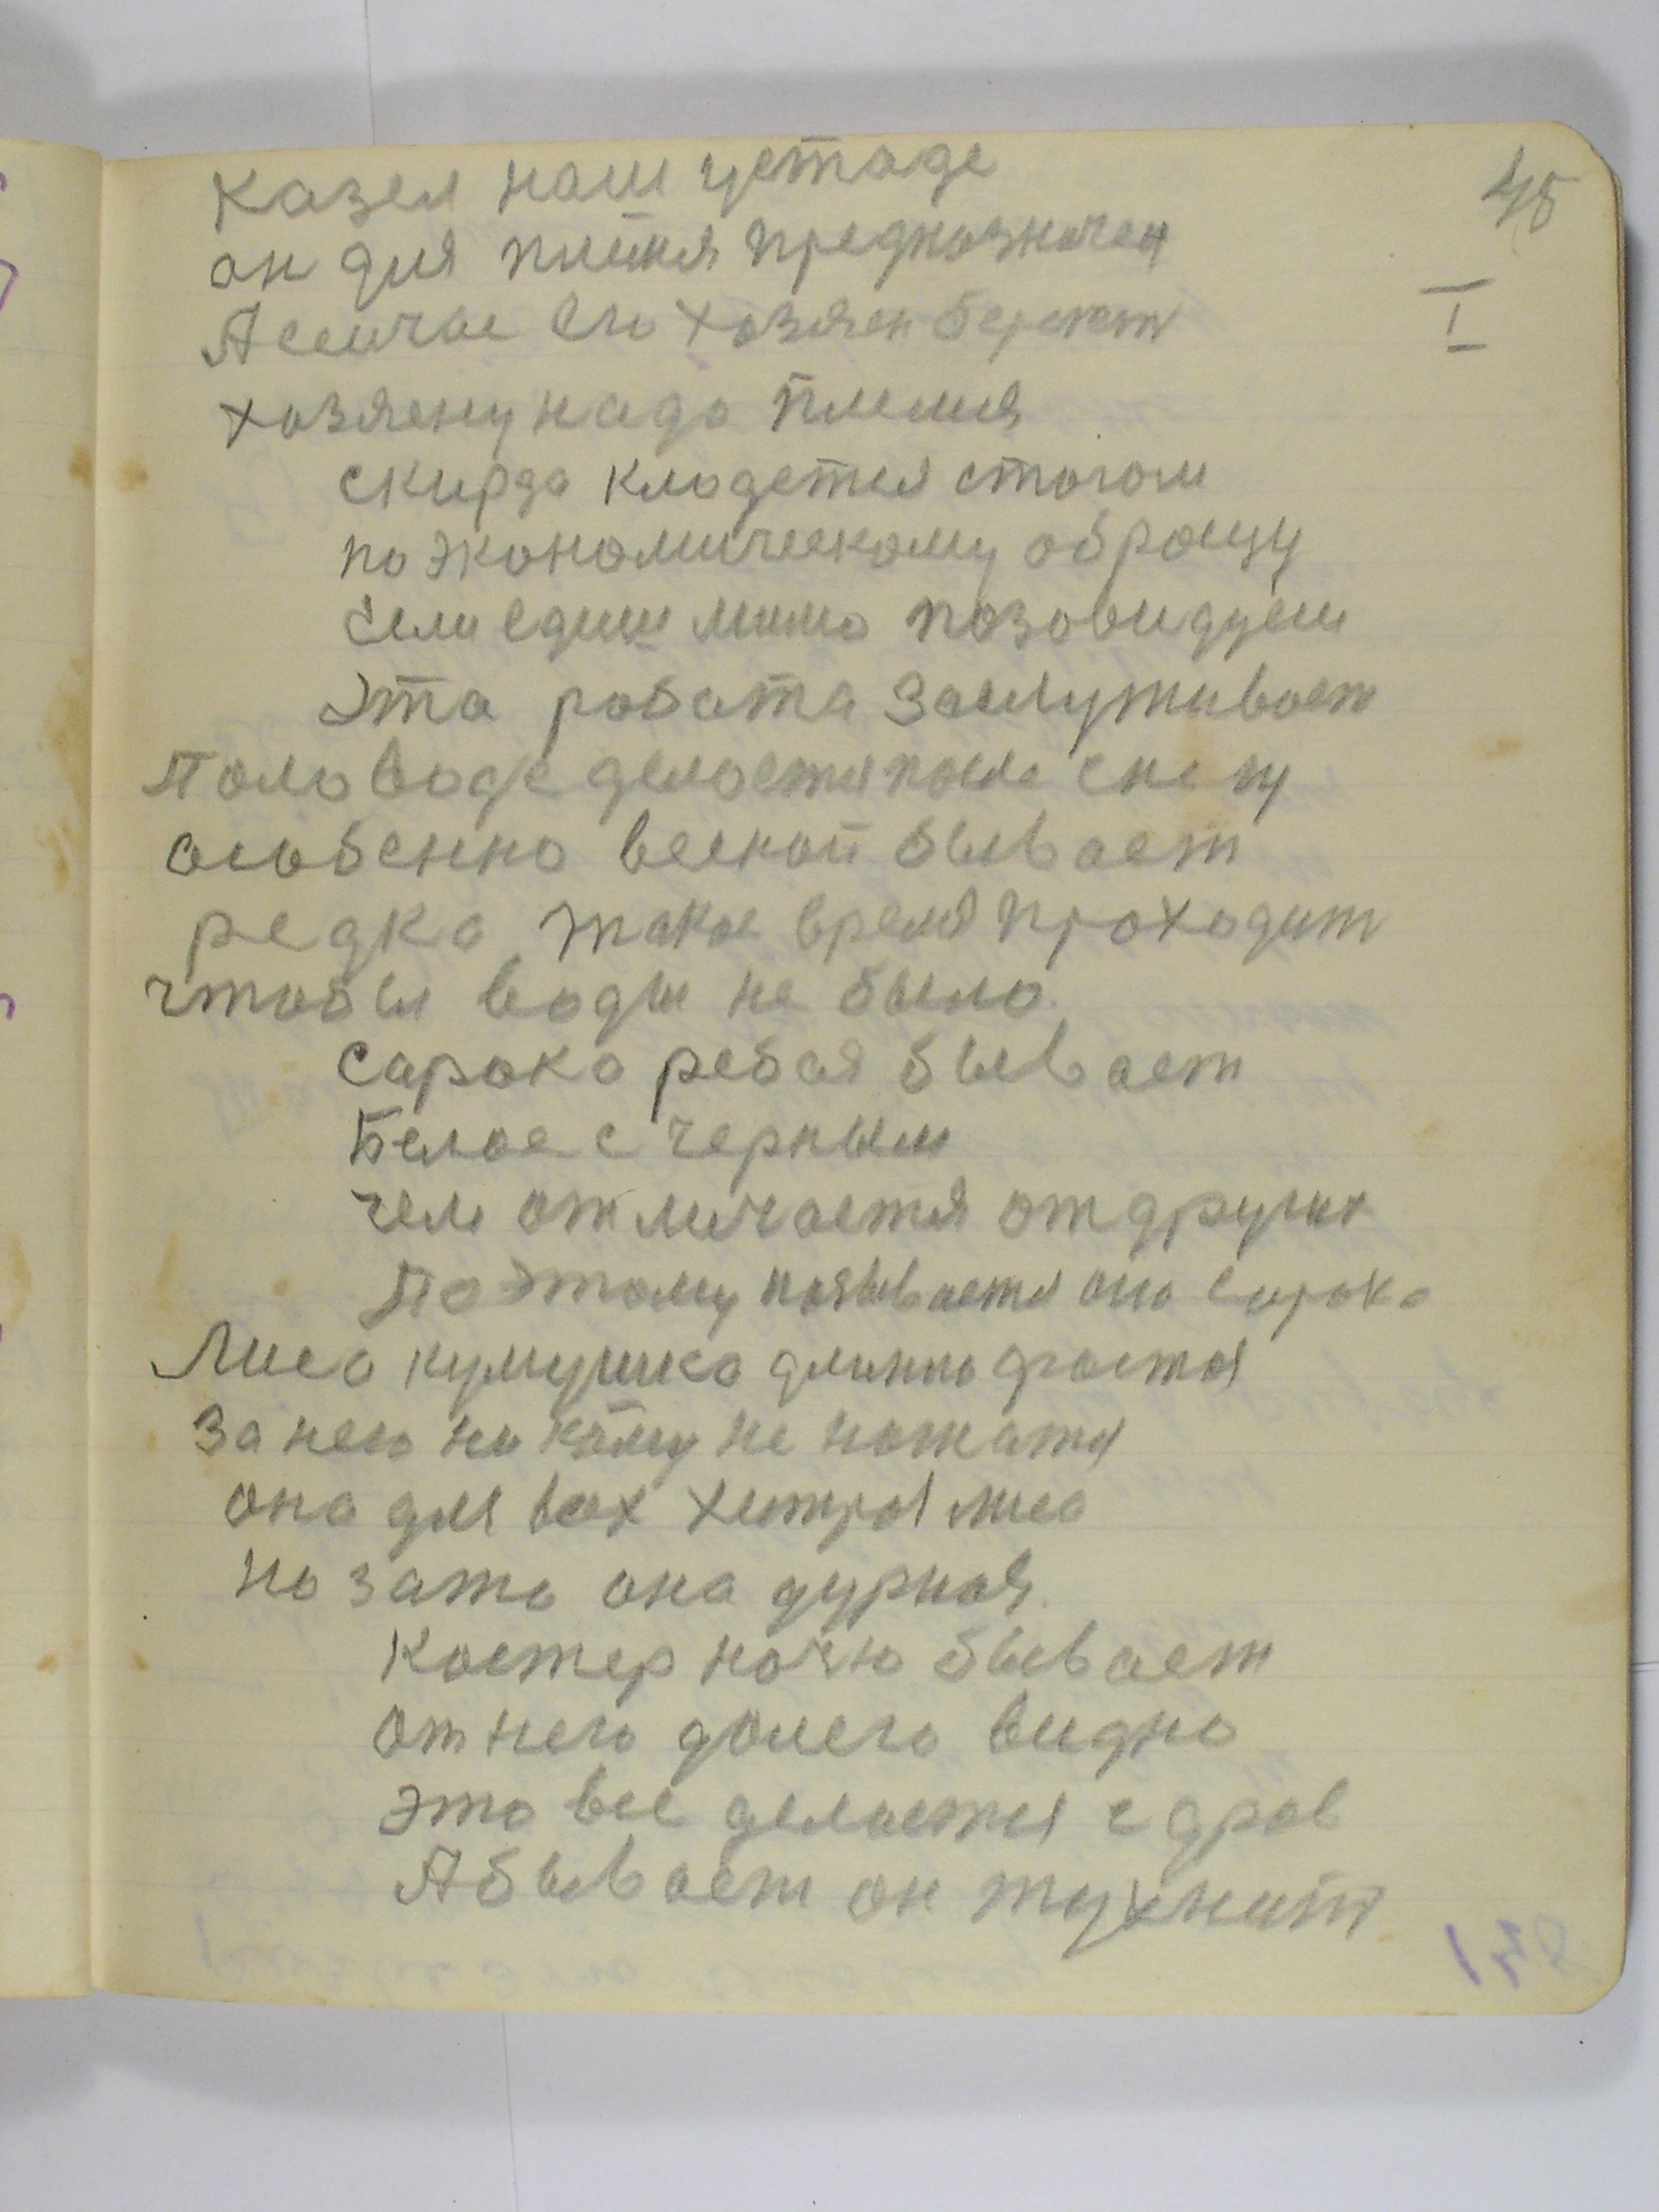 45
I
Казел наш устаде
он для племя предназначен
А сейчас его хозяен бережет
хозяену надо племя
скирда кладется стогом
по экономическому образцу
Если едиш мимо позовидуеш
Эта работа заслуживает
Половоде делается после снегу
особенно весной бывает
редко такое время проходит
чтобы воды не было.
Сарока ребая бывает
Белое с черным
чем отличается от других
Поэтому называется она сарока
Лиса кумушка длинно
За нею ни кому не
она для всех хитрая лиса
но зато она дурная.
Костер ночю бывает
от него долего видно
это все делается с дров
А бывает он тухнит